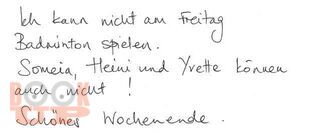 Ich kann nicht am Freitag
Badminton spielen.
Someia, Heini und Yvette können
auch nicht !
Schönes Wochenende.